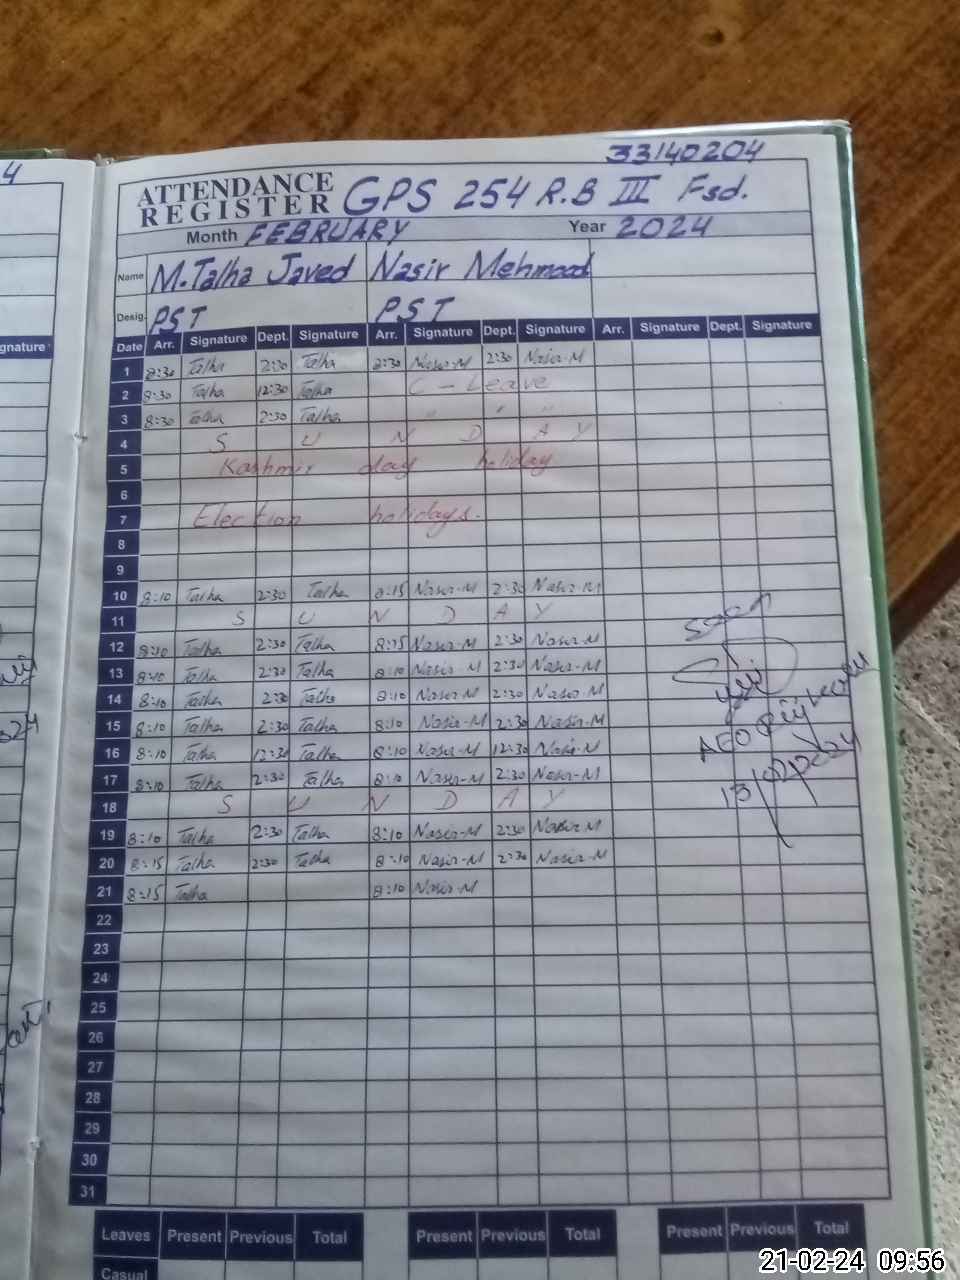 4
33140204
ATTENDANCE REGISTER GPS 254 R.B III Fsd.
Month FEBRUARY Year 2024
Name M.Talha Javed Nasir Mehmood
Desig. PST PST
gnature Date Arr. Signature Dept. Signature Arr. Signature Dept. Signature Arr. Signature Dept. Signature
1 8:30 Talha 2:30 Talha 8:30 Nasir-M 2:30 Nasir-M
2 8:30 Talha 12:30 Talha C-Leave
3 8:30 Talha 2:30 Talha " " "
4 S U N D A Y
5 Kashmir day holiday
6
7 Election holidays.
8
9
10 8:10 Talha 2:30 Talha 8:15 Nasir-M 2:30 Nasir-M
11 S U N D A Y
12 8:10 Talha 2:30 Talha 8:15 Nasir-M 2:30 Nasir-M
13 8:10 Talha 2:30 Talha 8:10 Nasir-M 2:30 Nasir-M
14 8:10 Talha 2:30 Talha 8:10 Nasir-M 2:30 Nasir-M
15 8:10 Talha 2:30 Talha 8:10 Nasir-M 2:30 Nasir-M
16 8:10 Talha 12:30 Talha 8:10 Nasir-M 12:30 Nasir-M
17 8:10 Talha 2:30 Talha 8:10 Nasir-M 2:30 Nasir-M
18 S U N D A Y
19 8:10 Talha 2:30 Talha 8:10 Nasir-M 2:30 Nasir-M
20 8:15 Talha 2:30 Talha 8:10 Nasir-M 2:30 Nasir-M
21 8:15 Talha 8:10 Nasir-M
22
23
24
25
26
27
28
29
30
31
Seen
AEO
13/02/2024
Leaves Present Previous Total Present Previous Total Present Previous Total
Casual
21-02-24 09:56